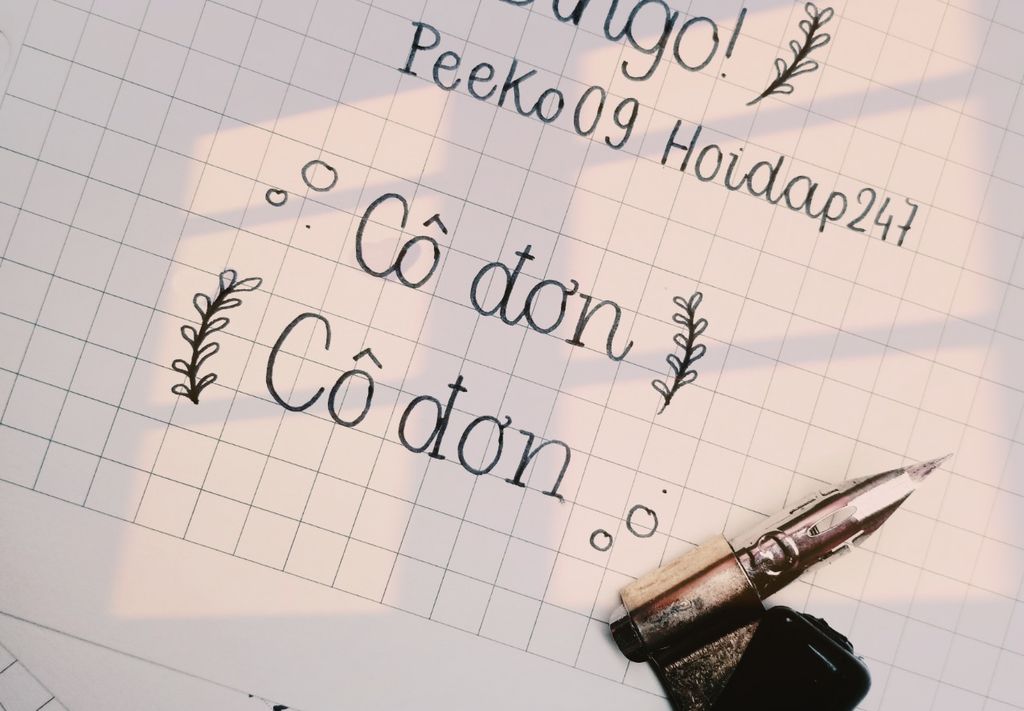 PeeKo09 Hoidap247
Cô đơn
Cô đơn